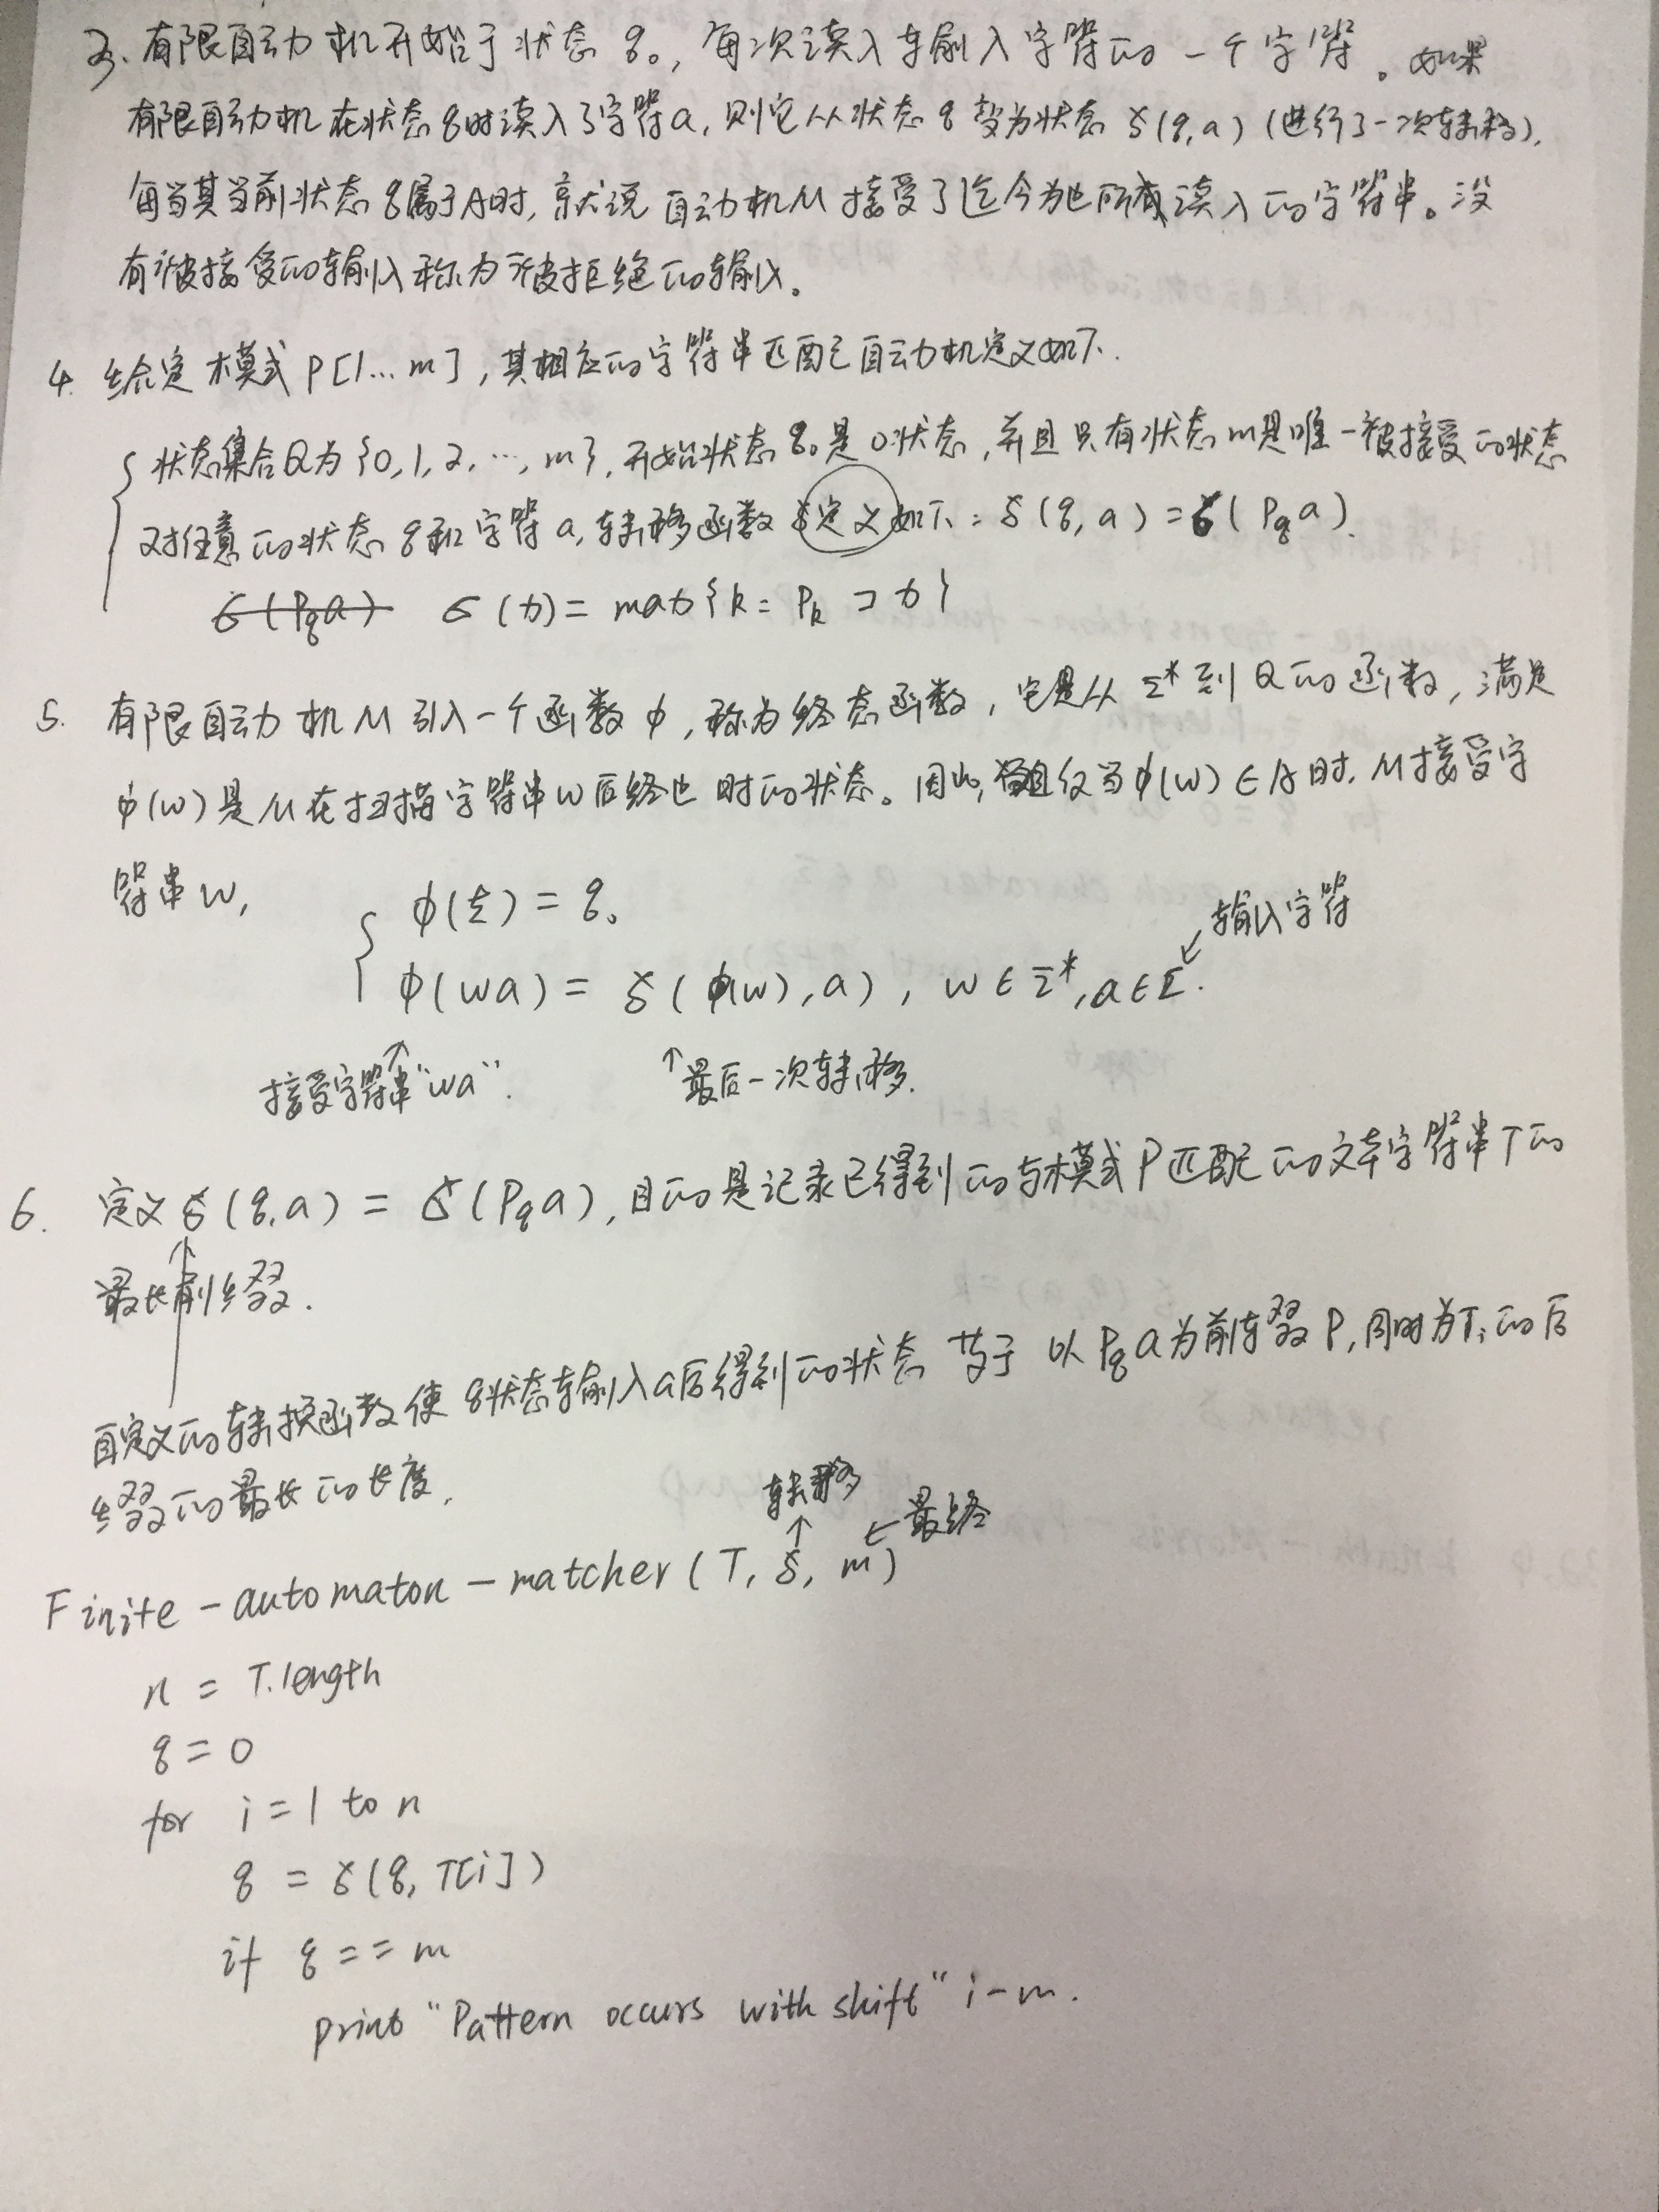 3. 有限自动机开始于状态 q₀, 每次读入输入字符的一个字符。如果
有限自动机在状态q时读入了字符a, 则它从状态q变为状态 δ(q,a) (进行了一次转移).
每当其当前状态q属于A时, 就说自动机M接受了迄今为止所读入的字符串。没
有被接受的输入称为被拒绝的输入。
4. 给定模式 P[1...m], 其相应的字符串匹配自动机定义如下.
状态集合Q为{0,1,2,…,m}, 开始状态q₀是0状态, 并且只有状态m是唯一被接受的状态
对任意的状态q和字符a, 转移函数δ定义如下: δ(q,a)=σ(Pqa).
σ(Pqa) σ(x)= max{k: Pk ⊐ x}
5. 有限自动机M引入一个函数φ, 称为终态函数, 它是从Σ*到Q的函数, 满足
φ(w)是M在扫描字符串w后终止时的状态。因此, 当且仅当φ(w)∈A时, M接受字
符串w,
φ(ε) = q₀
输入字符
φ(wa) = δ(φ(w),a), w∈Σ*, a∈Σ.
接受字符串“wa”.
↑最后一次转移.
6. 定义δ(q,a) = σ(Pqa), 目的是记录已得到的与模式P匹配的文本字符串T的
最长前缀.
自定义的转换函数使q状态输入a后得到的状态等于以Pqa为前缀P, 同时为Ti的后
缀的最长的长度.
转移
最终
Finite-automaton-matcher(T, δ, m)
n = T.length
q = 0
for i = 1 to n
q = δ(q, T[i])
if q == m
print “Pattern occurs with shift” i-m.